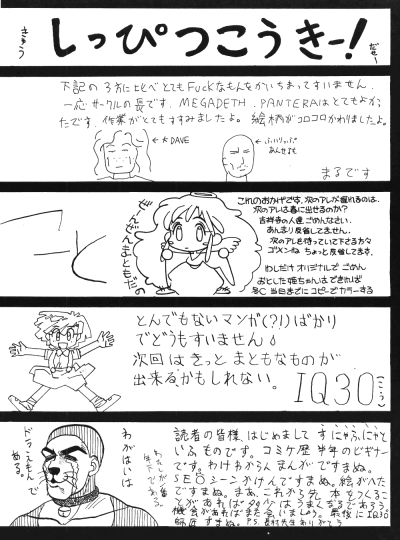 きゅう
しっぴつこうきー!
だせー
下記の3方に比べとてもFuckなもんをかいちゃってすいません。
一応サークルの長です。MEGADETH、PANTERAはとてもよか
ったです。作業がとてもすすみましたよ。絵柄がコロコロかわりましたよ。
←*DAVE
←ふぃりっぷ
あんせるも
まるです
ぜんぜん
まともだの
これのおかげです、次のアレが遅れるのは、
次のアレは春に出せるのか?
吉祥寺の人達ごめんなさい。
あんまり反省してません。
次のアレを待っていて下さる方々
ゴメンね ちょっと反省してます。
わしだけオリジナルでごめん
おとした姫ちゃんはできれば
冬C当日までにコピーでカラーする
とんでもないマンガ(?!)ばかり
でどうもすいません。
次回はきっとまともなものが
出来るかもしれない。
IQ30
(こう)
わがはいは
ドラえもんで
ある。
読者の皆様、はじめまして すにゃふにゃと
いふものです。コミケ歴半年のビギナー
です。わけわからんまんがですまぬ。
SEQシーンかけんですまぬ。絵がへた
ですまぬ。まあ、これから先 本をつくるこ
とがあれば
機会があればまた会いましょう。最後にIQ30
師匠すまぬ。P.S.
ありがとう